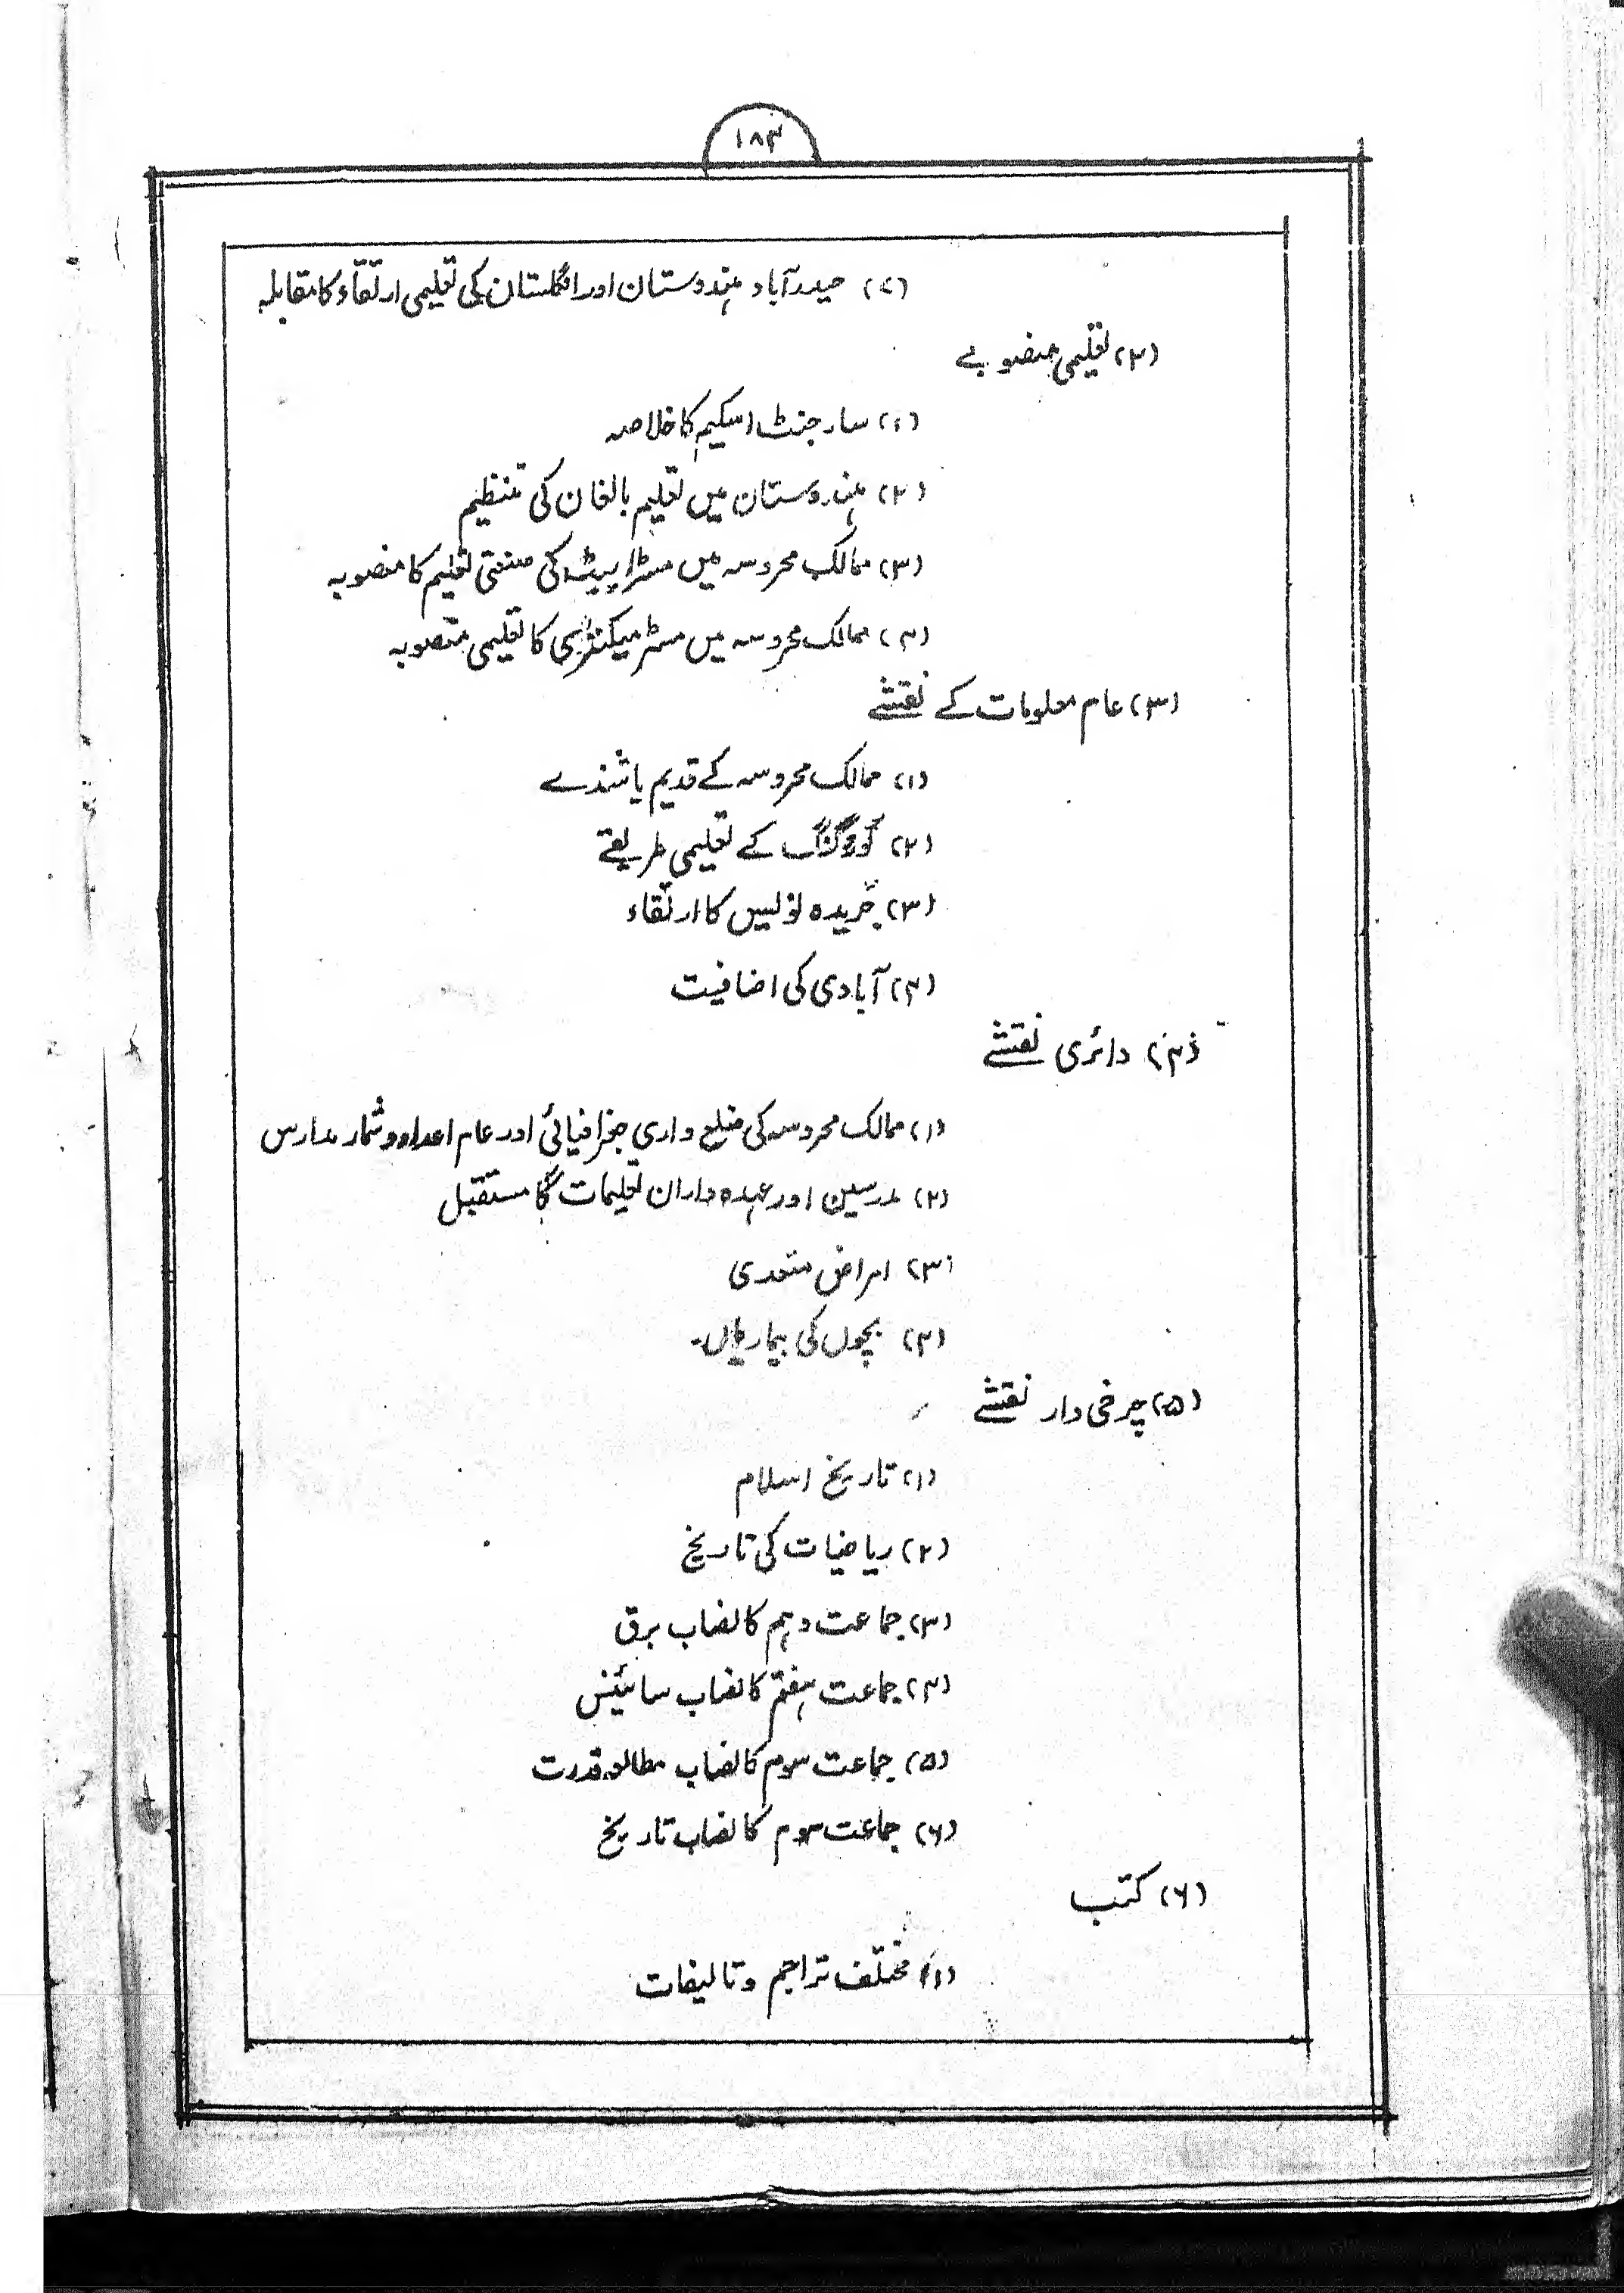 ۱۸۳
(۷) حیدرآباد ہندوستان اور انگلستان کی تعلیمی ارتقاء کا مقابلہ
(۲) تعلیمی منصوبے
(۱) سارجنٹ اسکیم کا خلاصہ
(۲) ہندوستان میں تعلیم بالغان کی تنظیم
(۳) ممالک محروسہ میں مسٹر ایبٹ کی صنعتی تعلیم کا منصوبہ
(۴) ممالک محروسہ میں مسٹر میکنزی کا تعلیمی منصوبہ
(۳) عام معلومات کے نقشے
(۱) ممالک محروسہ کے قدیم باشندے
(۲) کے تعلیمی طریقے
(۳) جریدہ نویس کا ارتقاء
(۴) آبادی کی اضافیت
(۴) دائری نقشے
(۱) ممالک محروسہ کی ضلع واری جغرافیائی اور عام اعداد و شمار مدارس
(۲) مدرسین اور عہدہ داران تعلیمات کا مستقبل
(۳) امراض متعدی
(۴) بچوں کی بیماریاں۔
(۵) چرخی دار نقشے
(۱) تاریخ اسلام
(۲) ریاضیات کی تاریخ
(۳) جماعت دہم کا نصاب برق
(۴) جماعت ہفتم کا نصاب سائینس
(۵) جماعت سوم کا نصاب مطالعہ قدرت
(۶) جماعت سوم کا نصاب تاریخ
(۶) کتب
(۱) مختلف تراجم و تالیفات